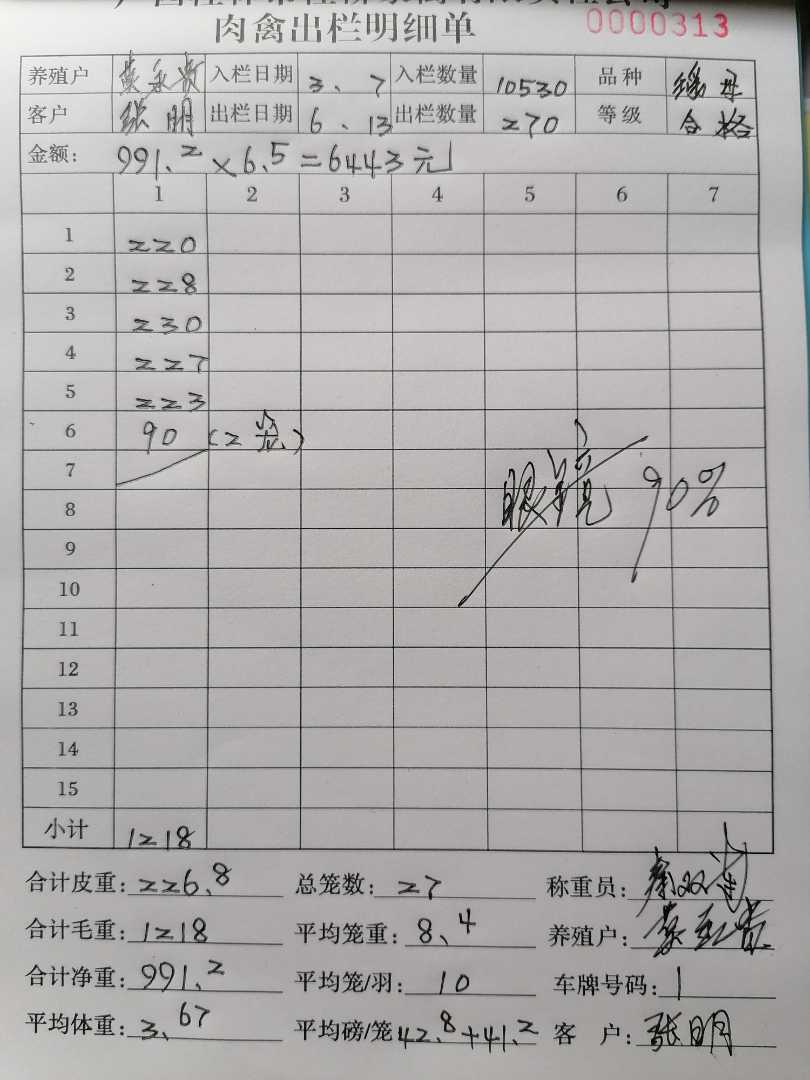 肉禽出栏明细单 0000313
养殖户 入栏日期 3、7 入栏数量 10530 品种
客户 张明 出栏日期 6、13 出栏数量 270 等级 合格
金额: 991.2×6.5=6443元
1 2 3 4 5 6 7
1 220
2 228
3 230
4 227
5 223
6 90 (2笼)
7
8 眼镜 90%
9
10
11
12
13
14
15
小计 1218
合计皮重: 226.8 总笼数: 27 称重员:
合计毛重: 1218 平均笼重: 8、4 养殖户:
合计净重: 991.2 平均笼/羽: 10 车牌号码: 1
平均体重: 3、67 平均磅/笼 42.8+41.2 客 户: 张明